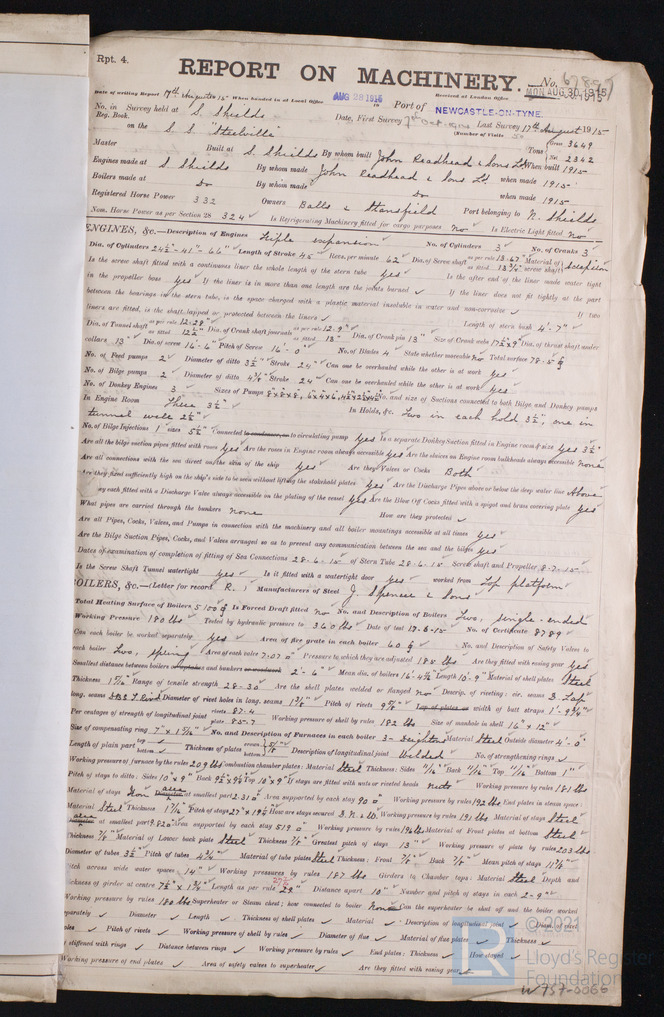 Rpt. 4.
REPORT ON MACHINERY.
No. 67897
Date of writing Report 17th August 1915 When handed in at Local Office AUG 28 1915 Received at London Office MON AUG. 30. 1915
Port of NEWCASTLE-ON-TYNE.
No. in Survey held at S. Shields Date, First Survey 7th Oct 1914 Last Survey 17th August 1915
Reg. Book. (Number of Visits
on the S. S. "Steelville" Tons Gross 3649 Net 2342
Master Built at S. Shields By whom built John Readhead & Sons Ld. When built 1915
Engines made at S. Shields By whom made John Readhead & Sons Ld. when made 1915
Boilers made at Do By whom made Do when made 1915
Registered Horse Power 332 Owners Balls & Stansfield Port belonging to N. Shields
Nom. Horse Power as per Section 28 324 Is Refrigerating Machinery fitted for cargo purposes No Is Electric Light fitted No
ENGINES, &c.—Description of Engines Triple expansion No. of Cylinders 3 No. of Cranks 3
Dia. of Cylinders 24½"-41"-66" Length of Stroke 45 Revs. per minute 62 Dia. of Screw shaft as per rule 13.67 as fitted 13¾" Material of screw shaft
Is the screw shaft fitted with a continuous liner the whole length of the stern tube yes Is the after end of the liner made water tight
in the propeller boss yes If the liner is in more than one length are the joints burned If the liner does not fit tightly at the part
between the bearings in the stern tube, is the space charged with a plastic material insoluble in water and non-corrosive If two
liners are fitted, is the shaft lapped or protected between the liners Length of stern bush 4'-7"
Dia. of Tunnel shaft as per rule 12.28" as fitted 12½" Dia. of Crank shaft journals as per rule 12.9" as fitted 13" Dia. of Crank pin 13" Size of Crank webs Dia. of thrust shaft under
collars 13" Dia. of screw 16'-6" Pitch of Screw 16'-0" No. of Blades 4 State whether moveable No Total surface 78.5
No. of Feed pumps 2 Diameter of ditto 3½" Stroke 24" Can one be overhauled while the other is at work yes
No. of Bilge pumps 2 Diameter of ditto 4⅜" Stroke 24" Can one be overhauled while the other is at work yes
No. of Donkey Engines 3 Sizes of Pumps No. and size of Suctions connected to both Bilge and Donkey pumps
In Engine Room Three 3½" In Holds, &c. Two in each hold 3½", one in
tunnel well 2½"
No. of Bilge Injections 1 sizes 5½" Connected to condenser, or to circulating pump yes Is a separate Donkey Suction fitted in Engine room & size yes 3½"
Are all the bilge suction pipes fitted with roses yes Are the roses in Engine room always accessible yes Are the sluices on Engine room bulkheads always accessible none
Are all connections with the sea direct on the skin of the ship yes Are they Valves or Cocks Both
Are they fixed sufficiently high on the ship's side to be seen without lifting the stokehold plates yes Are the Discharge Pipes above or below the deep water line Above
they each fitted with a Discharge Valve always accessible on the plating of the vessel yes Are the Blow Off Cocks fitted with a spigot and brass covering plate yes
What pipes are carried through the bunkers none How are they protected
Are all Pipes, Cocks, Valves, and Pumps in connection with the machinery and all boiler mountings accessible at all times yes
Are the Bilge Suction Pipes, Cocks, and Valves arranged so as to prevent any communication between the sea and the bilges yes
Dates of examination of completion of fitting of Sea Connections 28-6-15 of Stern Tube 28-6-15 Screw shaft and Propeller 8-7-15
Is the Screw Shaft Tunnel watertight yes Is it fitted with a watertight door yes worked from Top platform
BOILERS, &c.—(Letter for record R.) Manufacturers of Steel J. Spencer & Sons
Total Heating Surface of Boilers 5100 Is Forced Draft fitted No No. and Description of Boilers Two, single-ended
Working Pressure 180 lbs Tested by hydraulic pressure to 360 lbs Date of test 17-6-15 No. of Certificate 8789
Can each boiler be worked separately yes Area of fire grate in each boiler 60 No. and Description of Safety Valves to
each boiler Two, spring Area of each valve 7.07 Pressure to which they are adjusted 185 lbs Are they fitted with easing gear yes
Smallest distance between boilers or uptakes and bunkers or woodwork 2'-6" Mean dia. of boilers 16'-4½" Length 10'-9" Material of shell plates Steel
Thickness Range of tensile strength 28-30 Are the shell plates welded or flanged No Descrip. of riveting: cir. seams D. Lap
long. seams Diameter of rivet holes in long. seams Pitch of rivets Lap of plates or width of butt straps 1'-9¾"
Per centages of strength of longitudinal joint rivets 87.4 plate 85.7 Working pressure of shell by rules 182 lbs Size of manhole in shell 16" x 12"
Size of compensating ring No. and Description of Furnaces in each boiler 3-Deighton Material Steel Outside diameter 4'-0"
Length of plain part top bottom Thickness of plates crown bottom Description of longitudinal joint Welded No. of strengthening rings
Working pressure of furnace by the rules 209 lbs Combustion chamber plates: Material Steel Thickness: Sides 11/16" Back 11/16" Top 11/16" Bottom 1"
Pitch of stays to ditto: Sides 10"x9" Back Top 10"x9" If stays are fitted with nuts or riveted heads nuts Working pressure by rules 181 lbs
Material of stays Iron area Diameter at smallest part Area supported by each stay 90 Working pressure by rules 192 lbs End plates in steam space:
Material Steel Thickness Pitch of stays How are stays secured Working pressure by rules 191 lbs Material of stays Steel
area Diameter at smallest part Area supported by each stay 519 Working pressure by rules 196 lbs Material of Front plates at bottom Steel
Thickness ⅞" Material of Lower back plate Steel Thickness ⅞" Greatest pitch of stays 13" Working pressure of plate by rules 203 lbs
Diameter of tubes 3½" Pitch of tubes Material of tube plates Steel Thickness: Front ⅞" Back ⅞" Mean pitch of stays
Pitch across wide water spaces 14" Working pressures by rules 187 lbs Girders to Chamber tops: Material Steel Depth and
thickness of girder at centre Length as per rule 29" Distance apart 10" Number and pitch of stays in each 2-9"
Working pressure by rules 180 lbs Superheater or Steam chest; how connected to boiler None Can the superheater be shut off and the boiler worked
separately Diameter Length Thickness of shell plates Material Description of longitudinal joint Diam. of rivet
holes Pitch of rivets Working pressure of shell by rules Diameter of flue Material of flue plates Thickness
If stiffened with rings Distance between rings Working pressure by rules End plates: Thickness How stayed
Working pressure of end plates Area of safety valves to superheater Are they fitted with easing gear
© 2021
Lloyd's Register
Foundation
W757-0066